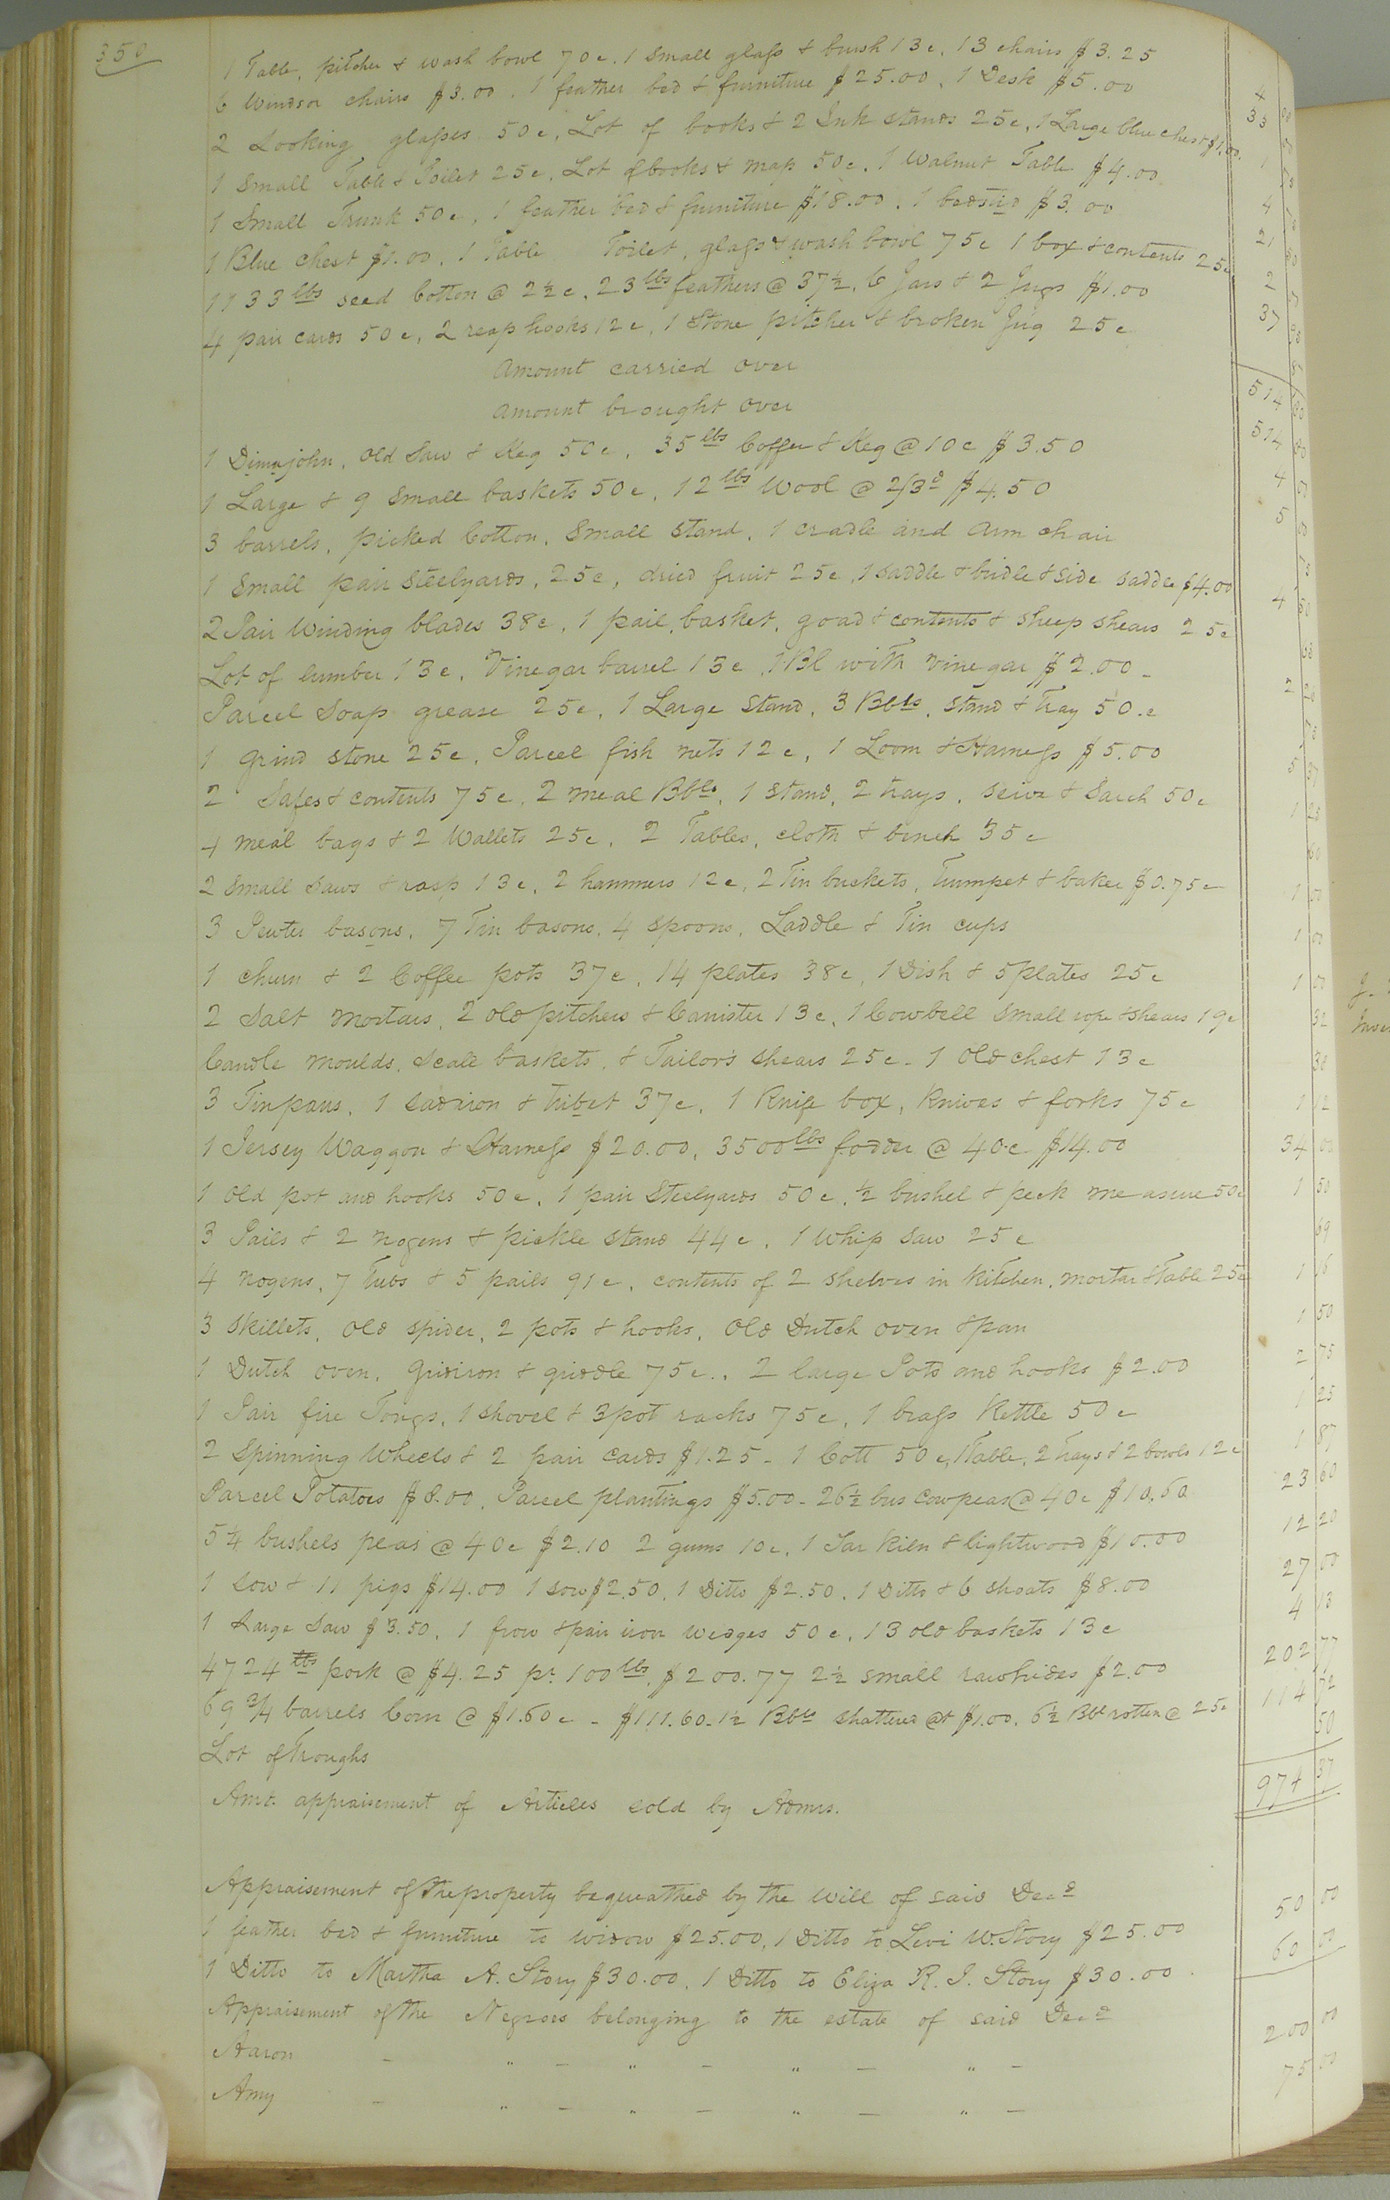 350
1 Table, pitcher & wash bowl 70c. 1 small glass & brush 13c, 13 chairs $3.25 4 08
6 Windsor chairs $3.00. 1 feather bed & furniture $25.00, 1 Desk $5.00 33 00
2 Looking glasses 50c, Lot of books & 2 Ink stands 25c, 1 Large blue chest $1.00. 1 75
1 Small Table & Toilet 25c, Lot of books & map 50c, 1 Walnut Table $4.00 4 75
1 Small Trunk 50c, 1 feather bed & furniture $18.00. 1 bedstid $3.00 21 50
1 Blue chest $1.00, 1 Table Toilet, glass & wash bowl 75c 1 box & contents 25c 2
1133 lbs seed Cotton @ 2½c, 23 lbs feathers @ 37½, 6 Jars & 2 Jugs $1.00 37
4 pair cards 50c, 2 reap hooks 12c, 1 Stone pitcher & broken Jug 25c
Amount carried over 514
Amount brought over 514
1 Dimajohn, old Saw & Keg 50c, 35 lbs Coffee & Keg @ 10c $3.50 4
1 Large & 9 small baskets 50c, 12 lbs Wool @ 2/3d $4.50 5
3 barrels, picked Cotton, Small stand, 1 cradle and arm chair
1 Small pair steelyards, 25c, dried fruit 25c, 1 saddle & bridle & side saddle $4.00 4 50
2 Pair Winding blades 38c, 1 pail, basket, goad & contents & sheep shears 25c
Lot of lumber 13c, Vinegar barrel 13c, 1 Bl with vinegar $2.00 2
Parcel Soap grease 25c, 1 Large Stand, 3 Bbls, stand & Tray 50c
1 grind stone 25c, Parcel fish nets 12c, 1 Loom & Harness $5.00 5 37
2 Safes & contents 75c, 2 meal Bbls, 1 stand, 2 trays, seive & Sarch 50c 1 25
4 meal bags & 2 Wallets 25c, 2 Tables, cloth & bench 35c 60
2 small saws & rasp 13c, 2 hammers 12c, 2 Tin buckets, Trumpet & baker $0.75c 1 00
3 Pewter basons, 7 Tin basons, 4 spoons, Laddle & Tin cups 1 00
1 churn & 2 Coffee pots 37c, 14 plates 38c, 1 Dish & 5 plates 25c 1 00
2 Salt Mortars, 2 old pitchers & Canister 13c, 1 Cowbell small rope & shears 19c 32
Candle moulds, Scale baskets, & Tailor's shears 25c - 1 Old chest 13c 38
3 Tinpans, 1 sadiron & tribet 37c, 1 Knife box, Knives & forks 75c 1 12
1 Jersey Waggon & Harness $20.00, 3500 lbs fodder @ 40c $14.00 34 00
1 old pot and hooks 50c, 1 pair Steelyards 50c, ½ bushel & peck measure 50c 1 50
3 Pails & 2 nogens & pickle stand 44c, 1 Whip Saw 25c 69
4 nogens, 7 Tubs & 5 pails 91c, contents of 2 shelves in Kitchen, mortar & Table 25c 1 16
3 skillets, old spider, 2 pots & hooks, old Dutch oven & pan 1 50
1 Dutch oven, Gridiron & griddle 75c., 2 large Pots and hooks $2.00 2 75
1 Pair fire Tongs, 1 shovel & 3 pot racks 75c, 1 brass Kettle 50c 1 25
2 Spinning Wheels & 2 pair cards $1.25 - 1 Cott 50c, Table, 2 Trays & 2 bowls 12c 1 87
Parcel Potatoes $8.00, Parcel plantings $5.00 - 26½ bus Cowpeas @ 40c $10.60 23 60
5¼ bushels peas @ 40c $2.10 2 gums 10c, 1 Tar Kiln & lightwood $10.00 12 20
1 sow & 11 pigs $14.00 1 sow $2.50, 1 Ditto $2.50, 1 Ditto & 6 shoats $8.00 27 00
1 Large Saw $3.50, 1 frow & pair iron wedges 50c, 13 old baskets 13c 4 13
4724 lbs pork @ $4.25 pr. 100 lbs, $200.77 2½ small rawhides $2.00 202 77
69¾ barrels Corn @ $1.60c - $111.60 - 1½ Bbls shattered @ $1.00, 6½ Bbl rotten @ 25c 114 72
Lot of Troughs 50
Amt. appraisement of Articles sold by Admrs. 974 37
Appraisement of the property bequeathed by the will of said Decd
1 feather bed & furniture to widow $25.00, 1 Ditto to Levi W. Story $25.00 50 00
1 Ditto to Martha A. Story $30.00, 1 Ditto to Eliza R. J. Story $30.00 60 00
Appraisement of the Negroes belonging to the estate of said Decd
Aaron - " - " - " - " - 200 00
Amy - " - " - " - " - 75 00